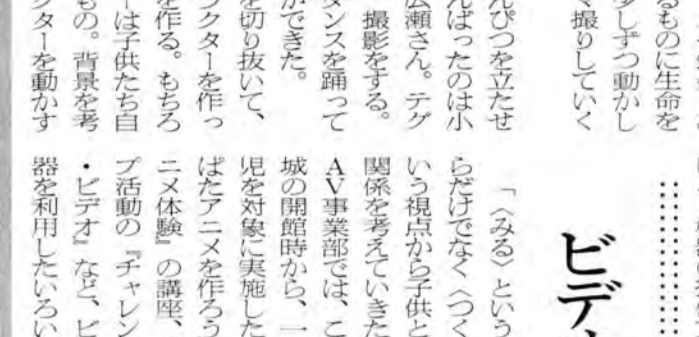 るものに生命を
少しずつ動かし
マ撮りしていく
んぴつを立たせ
んばったのは小
広瀬さん。テグ
撮影をする。
ダンスを踊って
ができた。
を切り抜いて、
ラクターを作っ
を作る。もちろ
ーは子供たち自
もの。背景を考
クターを動かす
ビデオ
「〈みる〉という
らだけでなく〈つく
いう視点から子供と
関係を考えていきた
AV事業部では、こ
城の開館時から、一
児を対象に実施した
ばたアニメを作ろう
ニメ体験』の講座、
プ活動の『チャレン
・ビデオ』など、ビ
器を利用したいろい